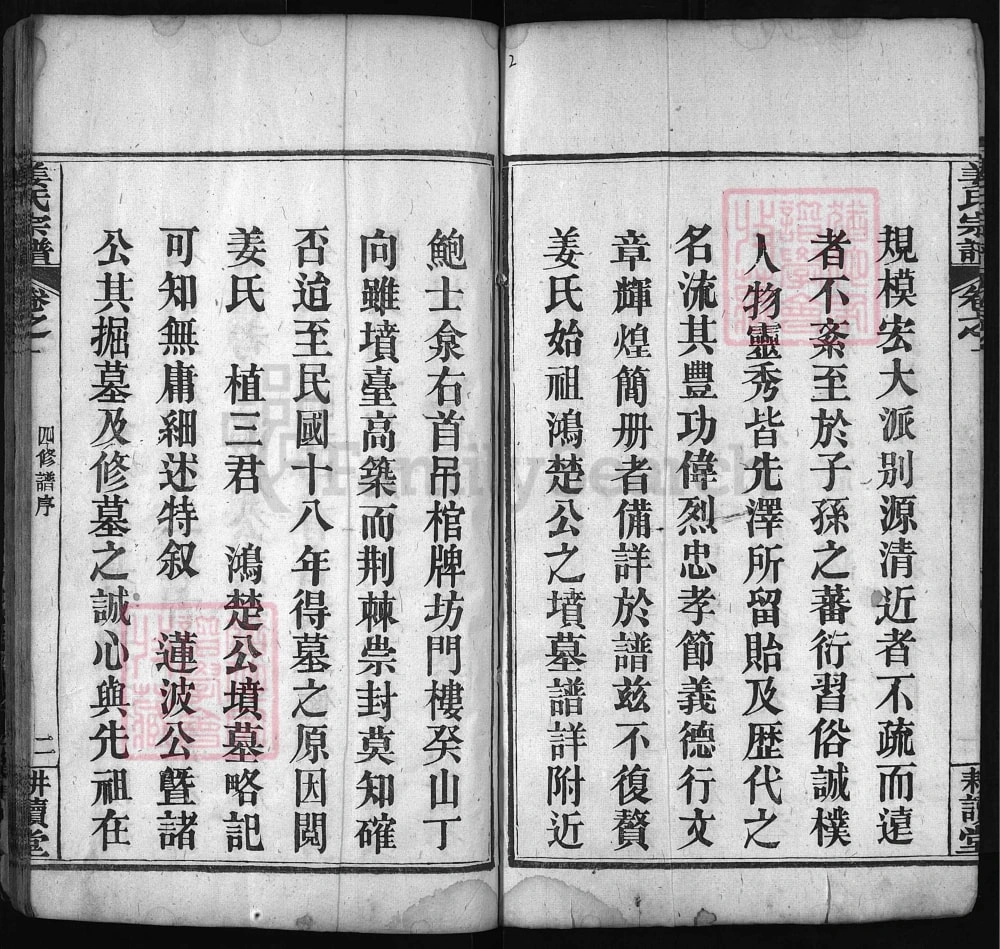 姜氏宗譜
卷之一
耕讀堂
規模宏大派別源清近者不疏而遠
者不紊至於子孫之蕃衍習俗誠樸
人物靈秀皆先澤所留貽及歷代之
名流其豐功偉烈忠孝節義德行文
章輝煌簡册者備詳於譜茲不復贅
姜氏始祖鴻楚公之墳墓譜詳附近
鮑士籴右首吊棺牌坊門樓癸山丁
向雖墳臺高築而荆棘祟封莫知確
否迨至民國十八年得墓之原因閲
姜氏 植三君 鴻楚公墳墓略記
可知無庸細述特叙 蓮波公暨諸
公其掘墓及修墓之誠心與先祖在
姜氏宗譜
卷之一
四修譜序
二
耕讀堂
2
Familybench